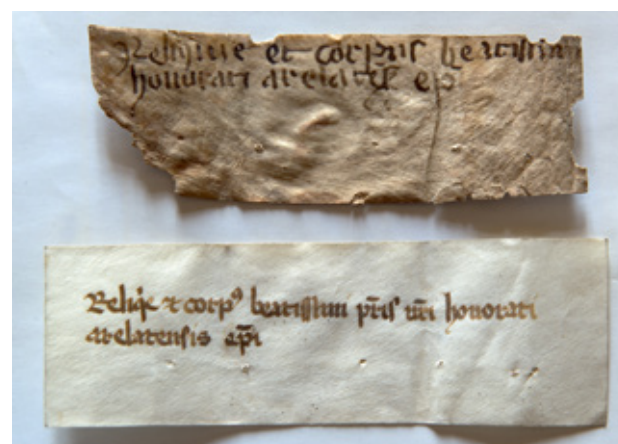 Reliquie et corpus beatissimi
honorati arelateñ ep
Reliq̄e ⁊ corpꝰ beatissimi pr̄is nr̄i honorati
arelatensis ep̄i